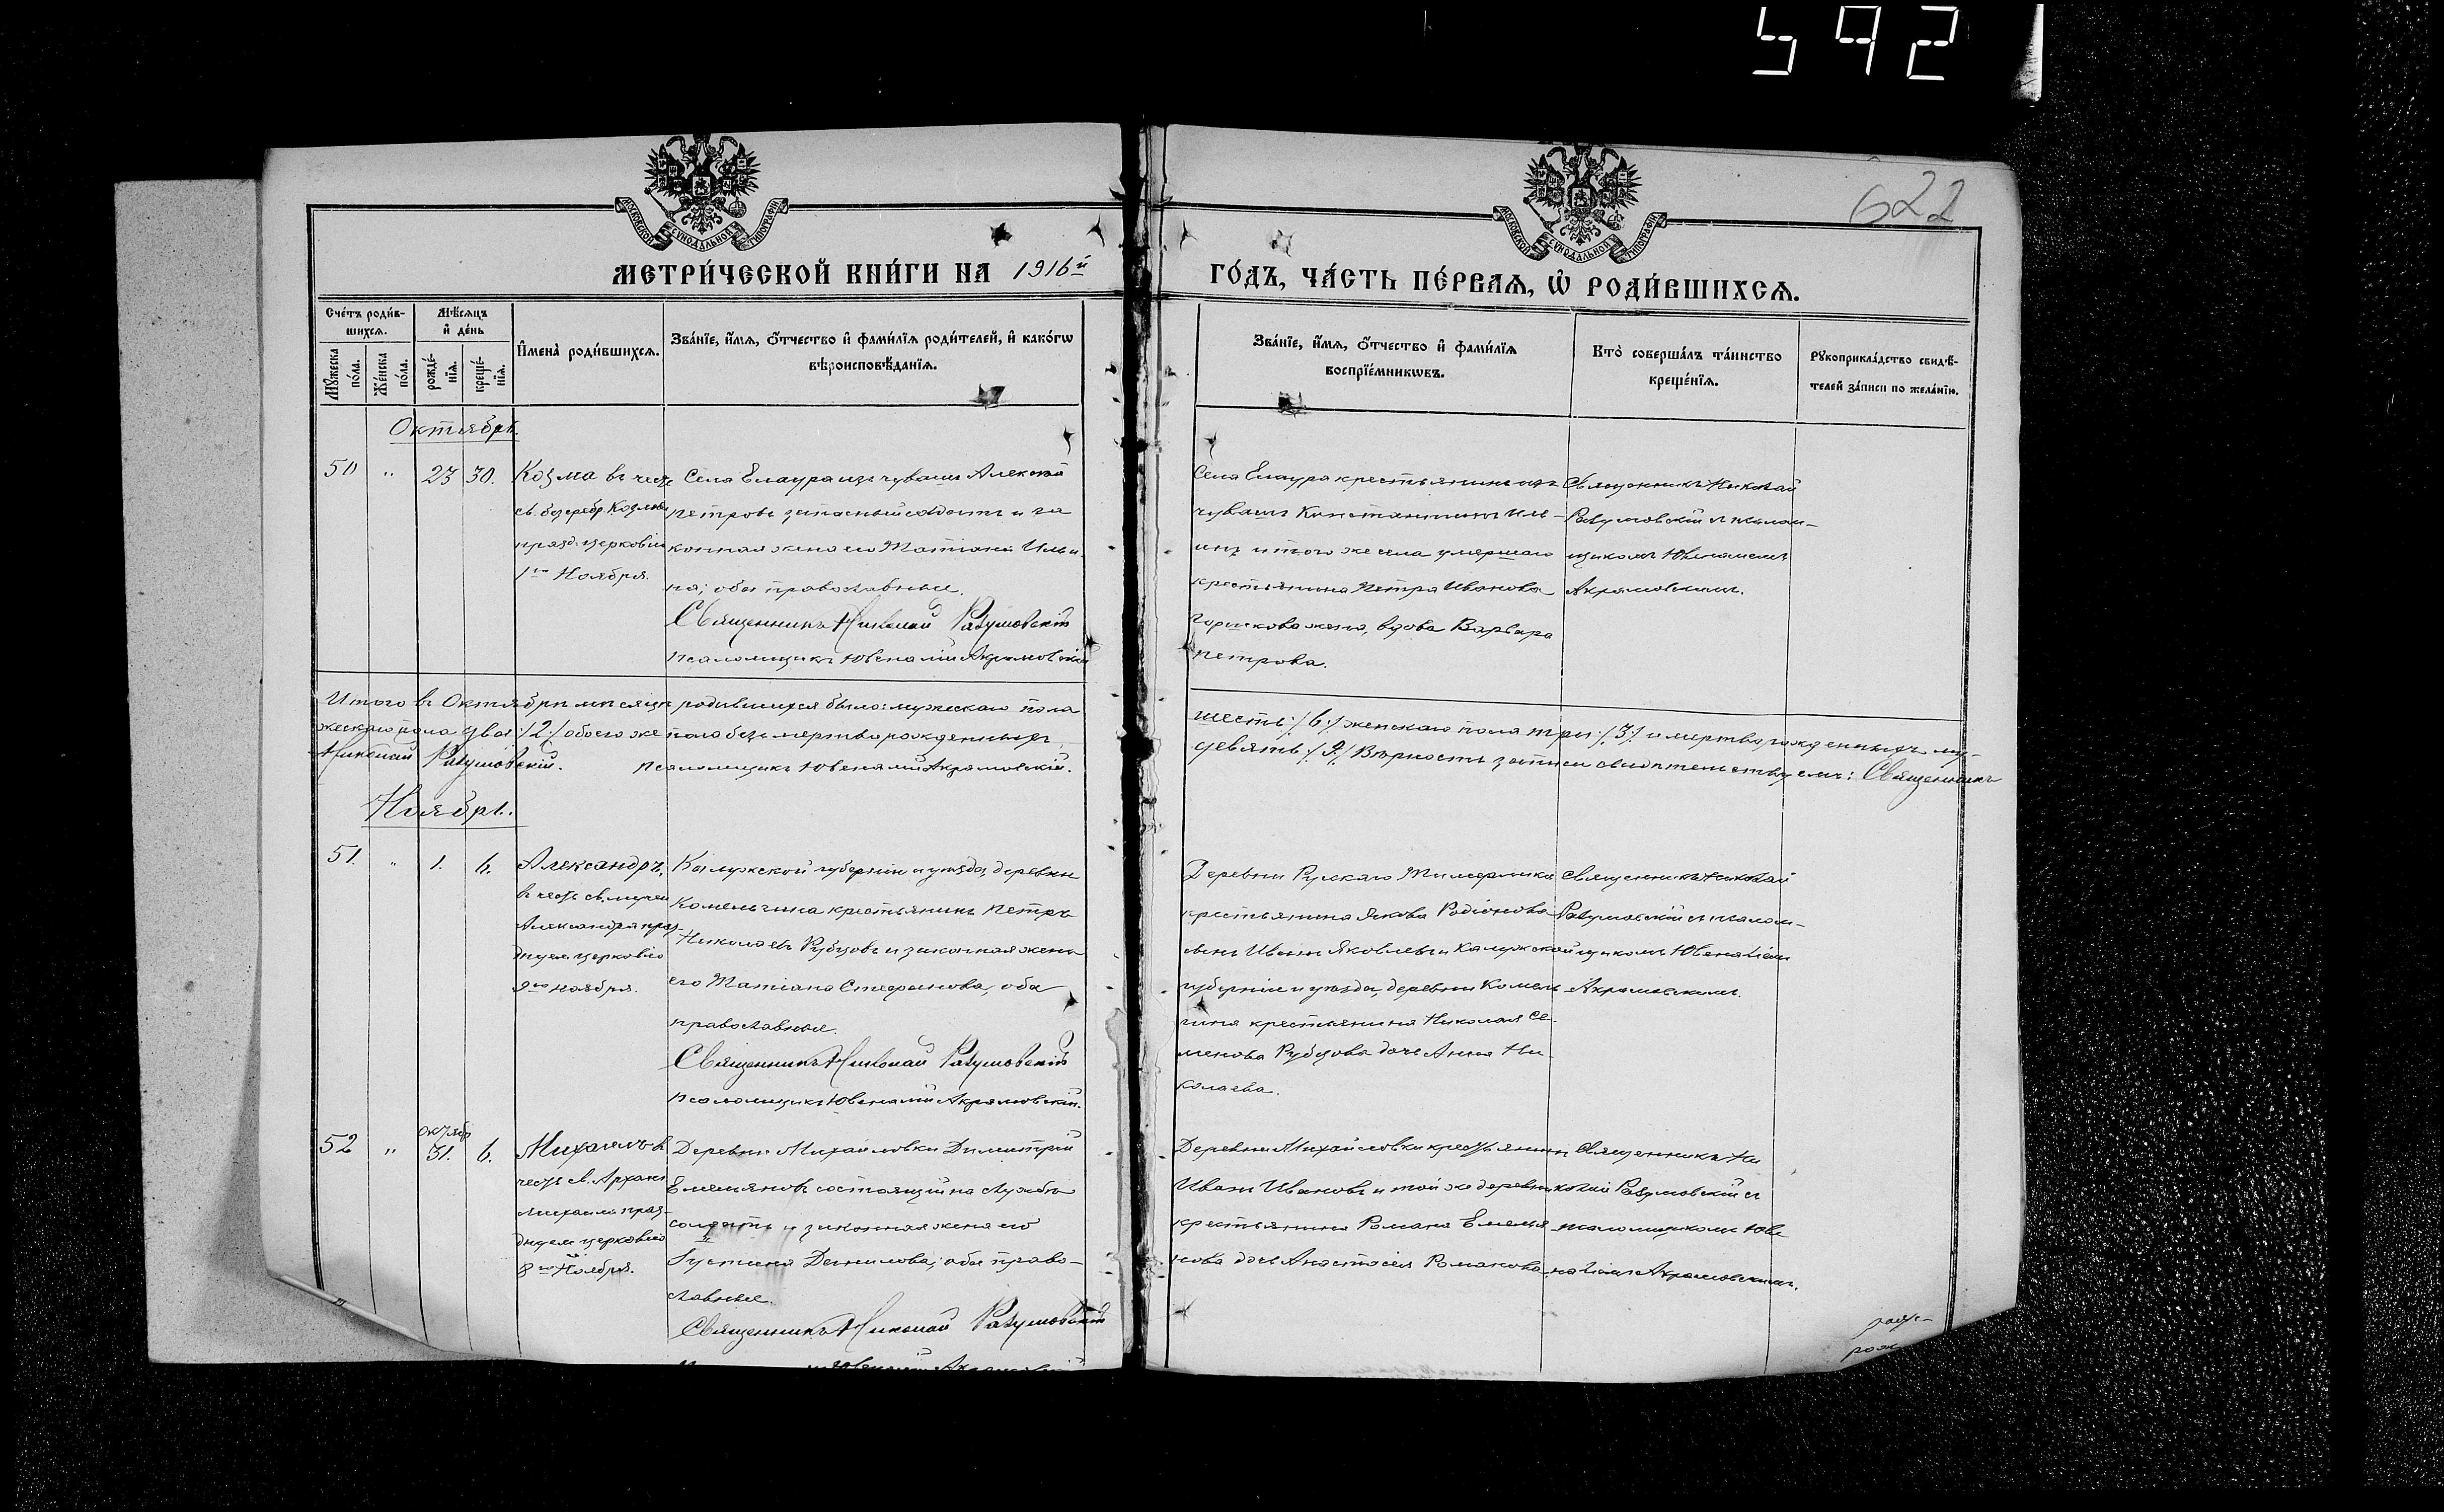 592
622
МОСКОВСКОЙ СѴНОДАЛЬНОЙ ТИПОГРАФІИ
МОСКОВСКОЙ СѴНОДАЛЬНОЙ ТИПОГРАФІИ
МЕТРИ́ЧЕСКОЙ КНИ́ГИ НА 1916й
ГО́ДЪ, ЧА́СТЬ ПЕ́РВАѦ, Ѡ҆ РОДИ́ВШИХСѦ.
Сче́тъ роди́в-
шихсѧ.
Мꙋ́жеска по́ла.
Же́нска по́ла.
Мѣ́сѧцъ
и҆ де́нь
рожде́-
нїѧ.
креще́-
нїѧ.
И҆мена̀ роди́вшихсѧ.
Зва́нїе, и҆́мѧ, ѻ҆́тчество и҆ фами́лїѧ роди́телей, и҆ како́гѡ
вѣроисповѣ́данїѧ.
Зва́нїе, и҆́мѧ, ѻ҆́тчество и҆ фами́лїѧ
воспрїе́мникѡвъ.
Кто̀ соверша́лъ та́инство
креще́нїѧ.
Рꙋкоприкла́дство свидѣ́-
телей за́писи по жела́нїю.
Октябрь.
50 " 23 30.
Козма въ честь
св. безсребр. Козмы
празд. церковію
1го Ноября.
Села Елаура изъ чувашъ Алексѣй
Петровъ запасный солдатъ и за
конная жена его Татіана Ильи-
на; оба православные.
Священникъ Николай Разумовскій
Псаломщикъ Ювеналій Акрамовскій
Села Елаура крестьянинъ изъ
чувашъ Константинъ Иль-
инъ и того же села умершаго
крестьянина Петра Иванова
Горшкова жена, вдова Варвара
Петрова.
Священникъ Николай
Разумовскій съ псалом-
щикомъ Ювеналіемъ
Акрамовскимъ.
Итого въ Октябрѣ мѣсяцѣ родившихся было: мужескаго пола
шесть /6/ женскаго пола три /3/ и мертворожденныхъ му-
жескаго пола два /2/ обоего же пола безъ мертворожденныхъ
девять /9/ Вѣрность записи свидѣтельствуемъ: Священникъ
Николай Разумовскій. Псаломщикъ Ювеналій Акрамовскій.
Ноябрь.
51. " 1. 6.
Александръ,
въ честь св. мучен.
Александра праз-
днуем. церковію
9го ноября.
Калужской губерніи и уѣзда, деревни
Комельгина крестьянинъ Петръ
Николаевъ Рубцовъ и законная жена
его Татіана Стефанова, оба
православные.
Священникъ Николай Разумовскій
Псаломщикъ Ювеналій Акрамовскій.
Деревни Русскаго Тимерлика
крестьянина Якова Родіонова
сынъ Иванъ Яковлевъ и Калужской
губерніи и уѣзда, деревни Комель-
гина крестьянина Николая Се-
менова Рубцова дочь Анна Ни-
колаева.
Священникъ Николай
Разумовскій съ псалом-
щикомъ Ювеналіемъ
Акрамовскимъ.
52 " Октябр. 31. 6.
Михаилъ въ
честь св. Архан.
Михаила праз-
днуем. церковію
8го Ноября.
Деревни Михайловки Димитрій
Емельяновъ состоящій на службѣ
солдатъ и законная жена его
Іустина Данилова; оба право-
славные.
Священникъ Николай Разумовскій
Деревни Михайловки крестьянинъ
Иванъ Ивановъ и той же деревни
крестьянина Романа Емелья-
нова дочь Анастасія Романова.
Священникъ Ни
колай Разумовскій съ
псаломщикомъ Юве
наліемъ Акрамовскимъ.